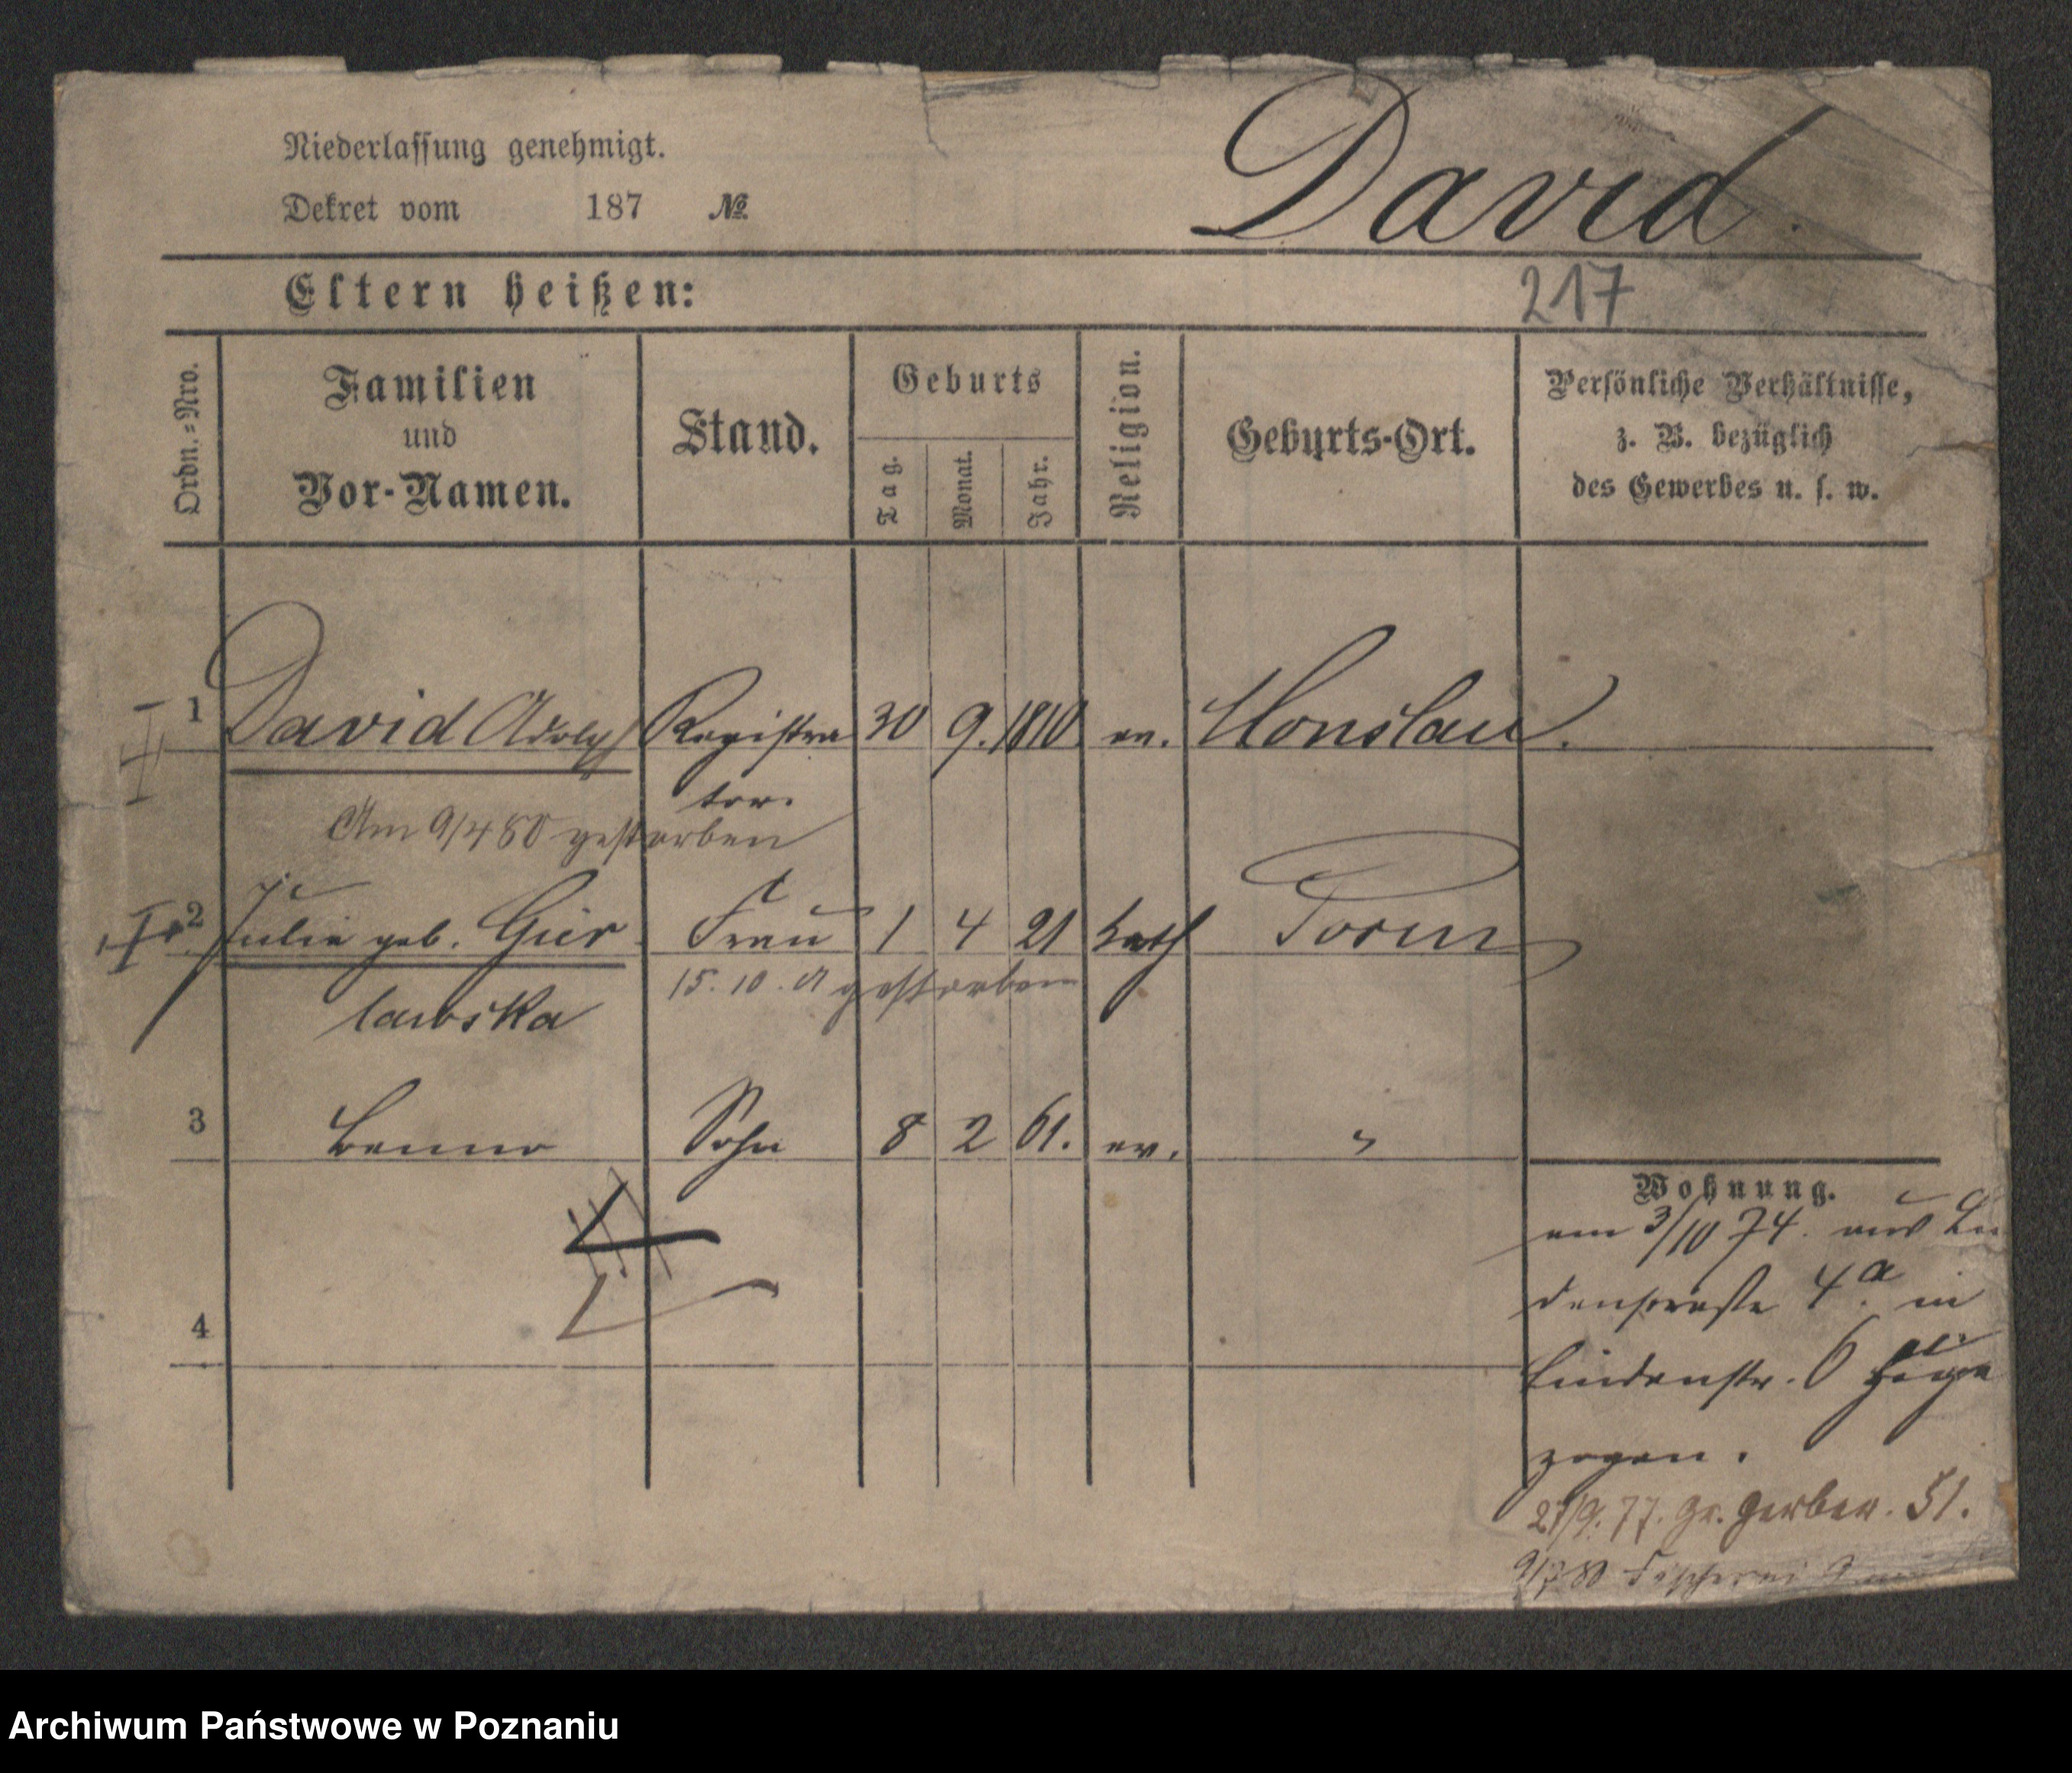 Niederlassung genehmigt.
David.
Dekret vom 187 №
Eltern heißen:
217
Ordn.-Nro.
Familien
und
Vor-Namen.
Stand.
Geburts
Tag.
Monat.
Jahr.
Religion.
Geburts-Ort.
Persönliche Verhältnisse,
z. B. bezüglich
des Gewerbes u. s. w.
1 David Adolph Registra 30 9. 1810 ev.
tor.
Am 9/4 80 gestorben
2 Julie geb. Gur Frau 1 4 21 kath Posen
15. 10. gestorben
lawska
3 Benno Sohn 8 2 61. ev. "
4
Wohnung.
am 3/10 74. aus
4a. in
Lindenstr. 6
zogen.
27/9. 77. Gr. Gerber. 51.
80 Fischerei
Archiwum Państwowe w Poznaniu